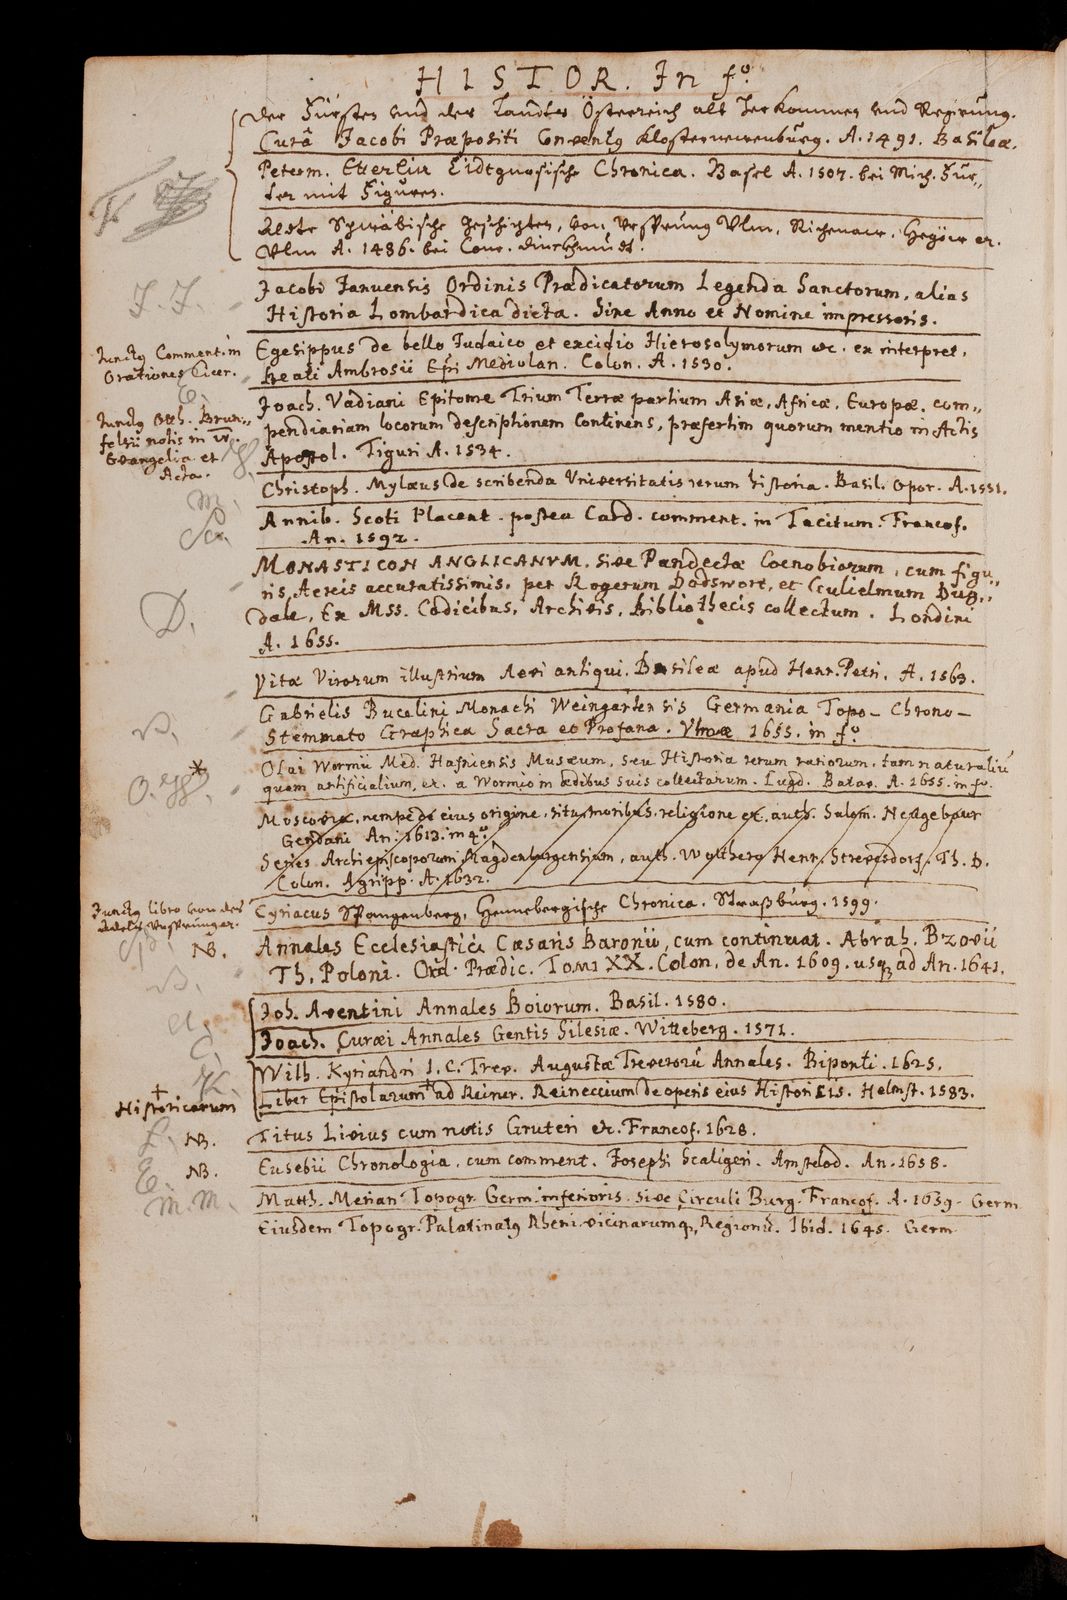 HISTOR. In fº.
Der Fürsten und des Landes Österreich alt Herkommen und Regierung.
Curâ Jacobi Præpositi Conventq Klosterneuenburg. A. 1491. Basileæ.
Peterm. Etterlin Eidtgnosische Chronica. Basel A. 1507. bei Mich. Fur-
ter mit Figuren.
F.
Schwäbische Geschichten, von Ursprung Ulm, Richenaw, Hegöw etc.
Vlm A. 1486. bei Conr. Dinckhmudt.
J. J.
Jacobi Januensis Ordinis Prædicatorum Legenda Sanctorum, alias
Historia Lombardica dicta. Sine Anno et Nomine impressoris.
Junctq Comment. in
Orationes Cicer.
Egesippus de bello Judaico et excidio Hierosolymorum etc. ex interpret.
Ambrosii Epi Mediolan. Colon. A. 1530.
E.
Junctq Otth. Brun-
felsii notis in IV
Evangelia et
Acta.
Joach. Vadiani Epitome Trium Terræ partium Asiæ, Africæ, Europæ, com-
pendiariam locorum descriptionem continens, præsertim quorum mentio in Actis
Apostol. Tiguri A. 1534.
M.
Christoph. Mylæus de scribenda Universitatis rerum historia. Basil. Opor. A. 1551.
Sc.
Annib. Scoti Placent. postea Card. comment. in Tacitum. Francof.
An. 1592.
D.
MONASTICON ANGLICANVM, sive Pandectæ Coenobiorum, cum figu-
ris, Aereis accuratissimis, per Rogerum Dodswort, et Gulielmum Dug-
dale, Ex Mss. Codicibus, Archivis, Bibliothecis collectum. Londini
A. 1655.
Vitæ Virorum illustrium Aevi antiqui. Basileæ apud Henr. Petri. A. 1563.
B.
Gabrielis Bucelini Monachi Weingartensis Germania Topo- Chrono-
Stemmato Graphica Sacra et Profana. Vlmæ 1655. in fº.
O. W. *
Olai Wormii Med. Hafniensis Musæum, seu Historia rerum rariorum, tam naturaliũ
quam artificialium, etc. a Wormio in ædibus suis collectarum. Lugd. Batav. A. 1655. in fº.
Moscovia, nempe de eius origine, situ, moribus, religione etc. auth. Salom. Neugebaur
Gendani An. 1613. in 4º.
Series Archiepiscoporum Magdenburgensium, auth. Henr. Strevesdorf. Th. D.
Colon. Agripp. A. 1632.
Junctq libro von des
Adels Ursprung etc.
Cyriacus Spangenberg, Hennebergische Chronica. Straßburg. 1599.
Sp.
NB.
Annales Ecclesiastici Cæsaris Baronii, cum continuat. Abrah. Bzovii
Th. Poloni. Ord. Prædic. Tomi XX. Colon. de An. 1609. usq ad An. 1641.
B.
Joh. Aventini Annales Boiorum. Basil. 1580.
A.
Joach. Curæi Annales Gentis Silesiæ. Witteberg. 1571.
C.
Wilh. Kyriandri I. C. Trev. Augustæ Treverorũ Annales. Biponti. 1625.
K.
Liber Epistolarum + ad Reiner. Reineccium de operis eius Historicis. Helmst. 1583.
+
Historicarum
L. NB.
Titus Livius cum notis Gruteri etc. Francof. 1628.
E. NB.
Eusebii Chronologia, cum comment. Josephi Scaligeri. Amstelod. An. 1658.
M. M.
Matth. Merian Topogr. Germ. inferioris. sive Circuli Burg. Francof. A. 1639. Germ
Eiusdem Topogr. Palatinatq Rheni vicinarumq Regionũ. Ibid. 1645. Germ